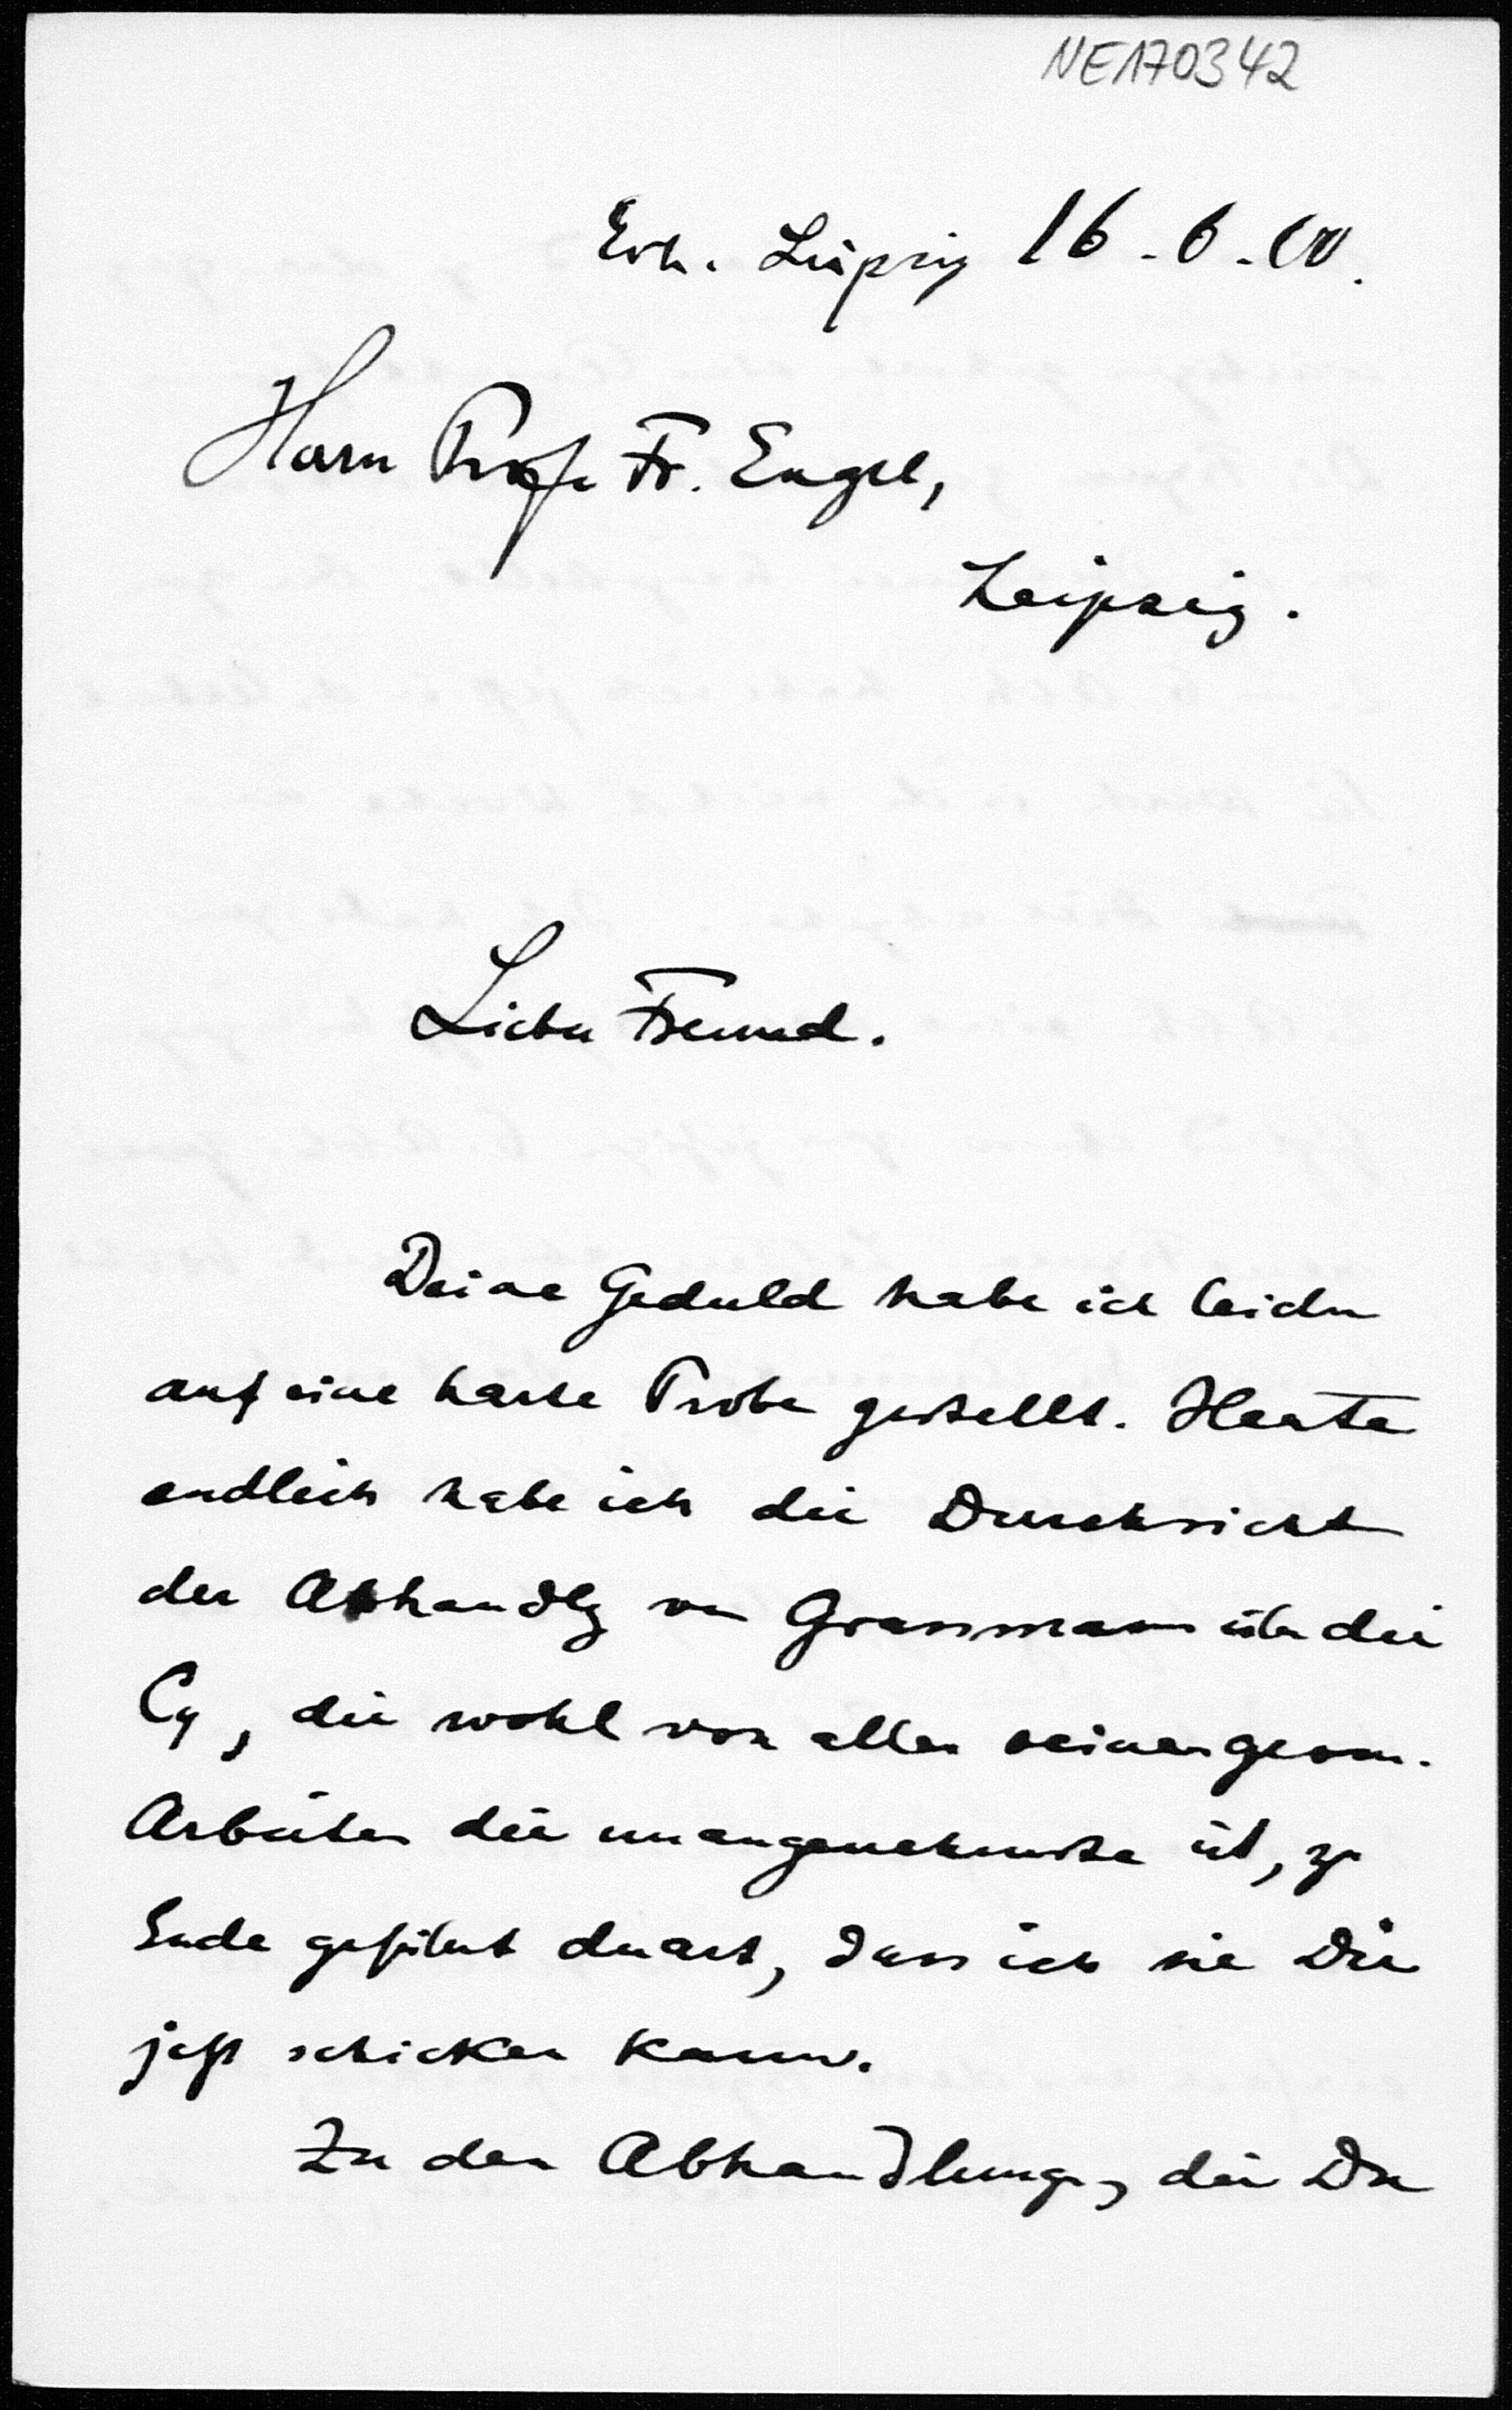 NE170342
Leipzig 16.6.00.
Herrn Prof. Fr. Engel,
Leipzig.
Lieber Freund.
Deine Geduld habe ich leider
auf eine harte Probe gestellt. Heute
endlich habe ich die Durchsicht
der Abhandlg von Grassmann über die
die wohl von allen seinen geom.
Arbeiten die unangenehmste ist, zu
Ende geführt derart, dass ich sie Dir
jetzt schicken kann.
Zu den Abhandlungen, die Du